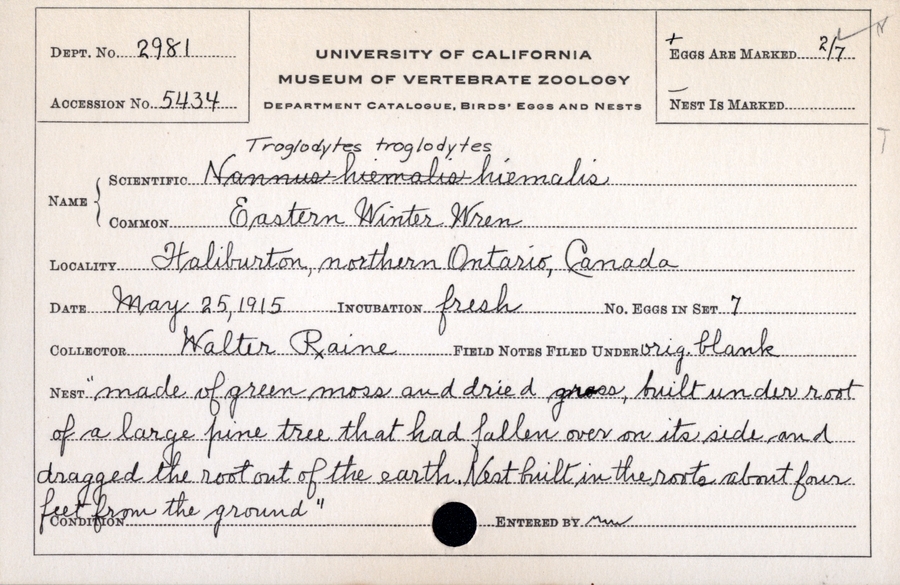 DEPT. No. 2981
ACCESSION No. 5434
UNIVERSITY OF CALIFORNIA
MUSEUM OF VERTEBRATE ZOOLOGY
DEPARTMENT CATALOGUE, BIRDS' EGGS AND NESTS
+
EGGS ARE MARKED 2/7
NEST IS MARKED
T
Troglodytes troglodytes
NAME
SCIENTIFIC Nannus hiemalis hiemalis
COMMON Eastern Winter Wren
LOCALITY Haliburton, northern Ontario, Canada
DATE May 25, 1915 INCUBATION fresh No. EGGS IN SET 7
COLLECTOR Walter Raine FIELD NOTES FILED UNDER orig. blank
NEST "made of green moss and dried grass, built under root
of a large pine tree that had fallen over on its side and
dragged the root out of the earth. Nest built in the roots about four
feet from the ground"
CONDITION ENTERED BY